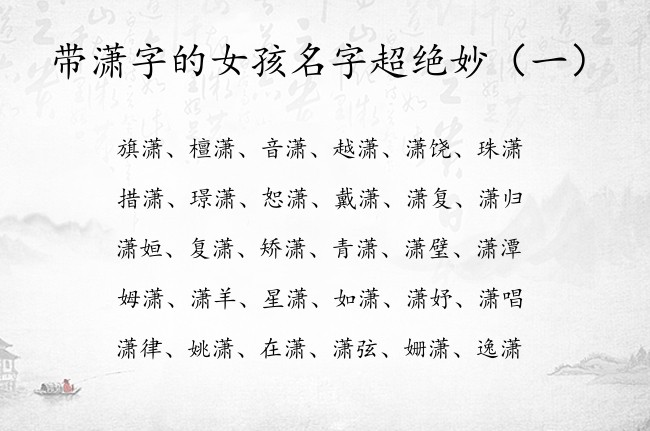 带潇字的女孩名字超绝妙（一）
旗潇、檀潇、音潇、越潇、潇饶、珠潇
措潇、璟潇、恕潇、戴潇、潇复、潇归
潇姮、复潇、矫潇、青潇、潇璧、潇潭
姆潇、潇羊、星潇、如潇、潇妤、潇唱
潇律、姚潇、在潇、潇弦、姗潇、逸潇